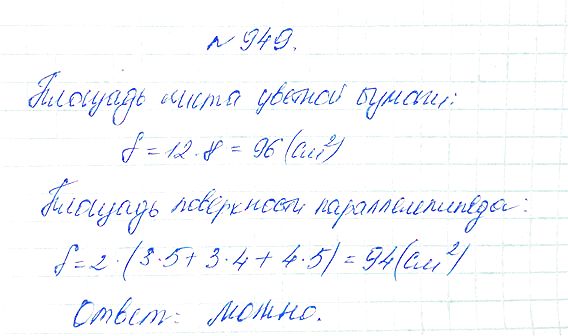 № 949.
Площадь листа цветной бумаги:
S = 12 · 8 = 96 (см²)
Площадь поверхности параллелепипеда:
S = 2 · (3·5 + 3·4 + 4·5) = 94 (см²)
Ответ: можно.